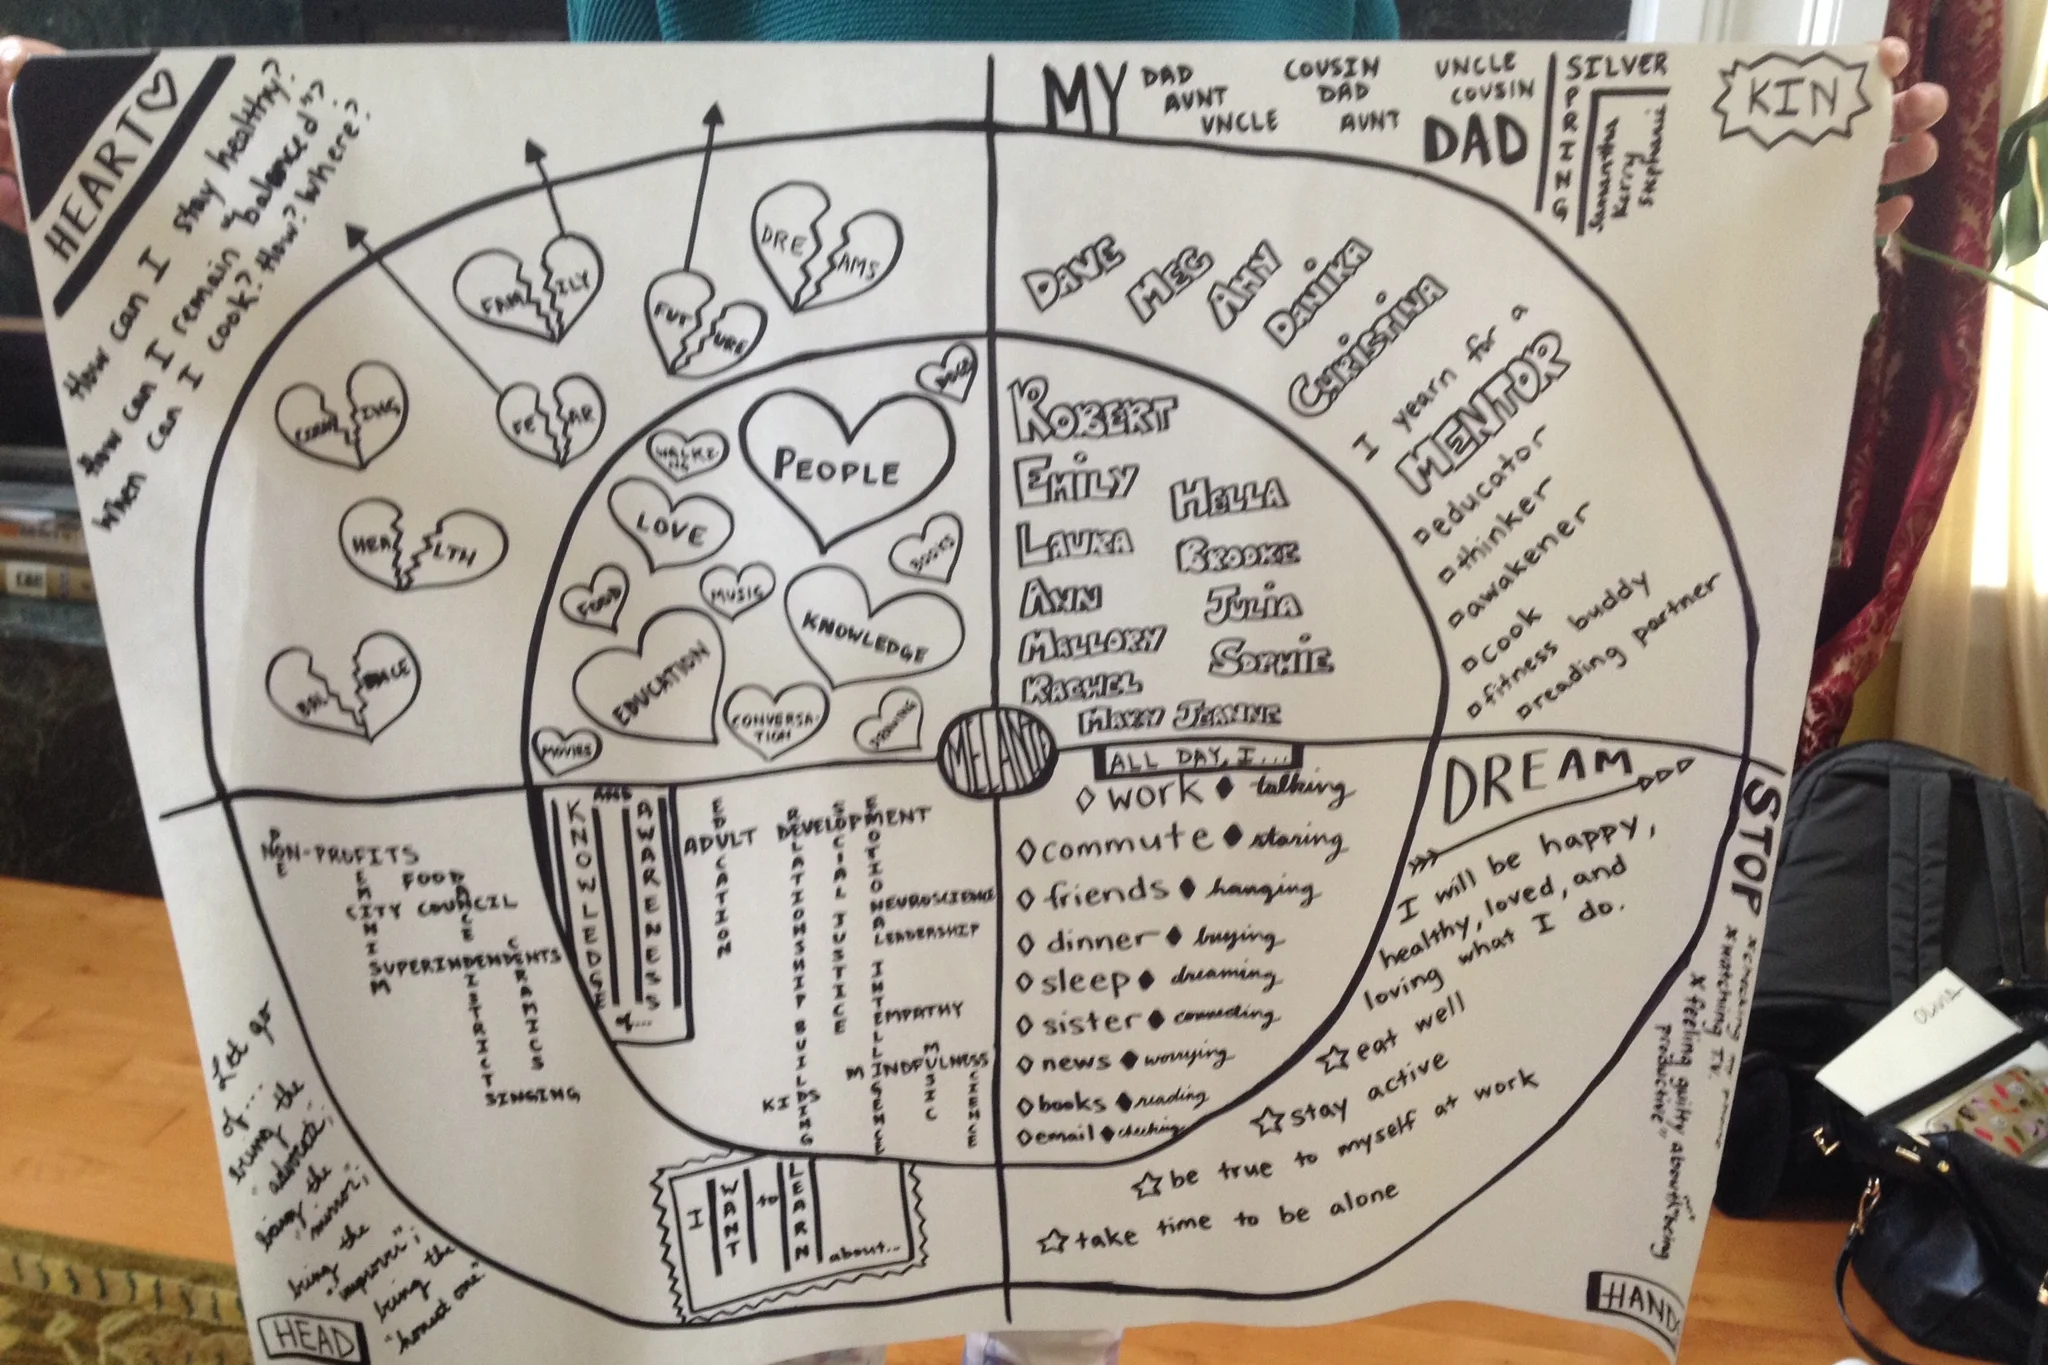 HEART
How can I stay healthy?
How can I remain "balanced"?
When can I cook? How? Where?
FAMILY
FUTURE
DREAMS
FEAR
HEALTH
BALANCE
WALKING
PEOPLE
LOVE
BOOKS
FOOD
MUSIC
KNOWLEDGE
EDUCATION
CONVERSATION
MOVIES
MELANIE
MY
DAD
AUNT
UNCLE
COUSIN
DAD
AUNT
UNCLE
COUSIN
DAD
SILVER
SPRINGS
Samantha
Kerry
Stephanie
KIN
DAVE
MEG
AMY
DANIKA
CHRISTINA
I yearn for a
MENTOR
educator
thinker
awakener
cook
fitness buddy
reading partner
ROBERT
EMILY
LAURA
ANN
MALLORY
RACHEL
MARY JEANNE
HELLA
BROOKE
JULIA
SOPHIE
ALL DAY, I...
work talking
commute staring
friends hanging
dinner buying
sleep dreaming
sister connecting
news worrying
books reading
email checking
DREAM
I will be happy,
healthy, loved, and
loving what I do.
eat well
stay active
be true to myself at work
take time to be alone
STOP
x checking my phone
x watching TV
x feeling guilty about "being
productive"
HAND
KNOWLEDGE
AND
AWARENESS
of...
ADULT
EDUCATION
DEVELOPMENT
RELATIONSHIP BUILDING
SOCIAL JUSTICE
EMOTIONAL INTELLIGENCE
NEUROSCIENCE
LEADERSHIP
EMPATHY
MINDFULNESS
MUSIC
SCIENCE
KIDS
NON-PROFITS
FOOD
FEMINISM
CITY COUNCIL
DANCE
SUPERINDENDENTS
DISTRICT
CERAMICS
SINGING
I WANT to LEARN about...
Let go
of...
being the
"advocate";
being the
"mirror";
being the
"improver";
being the
"honest one"
HEAD